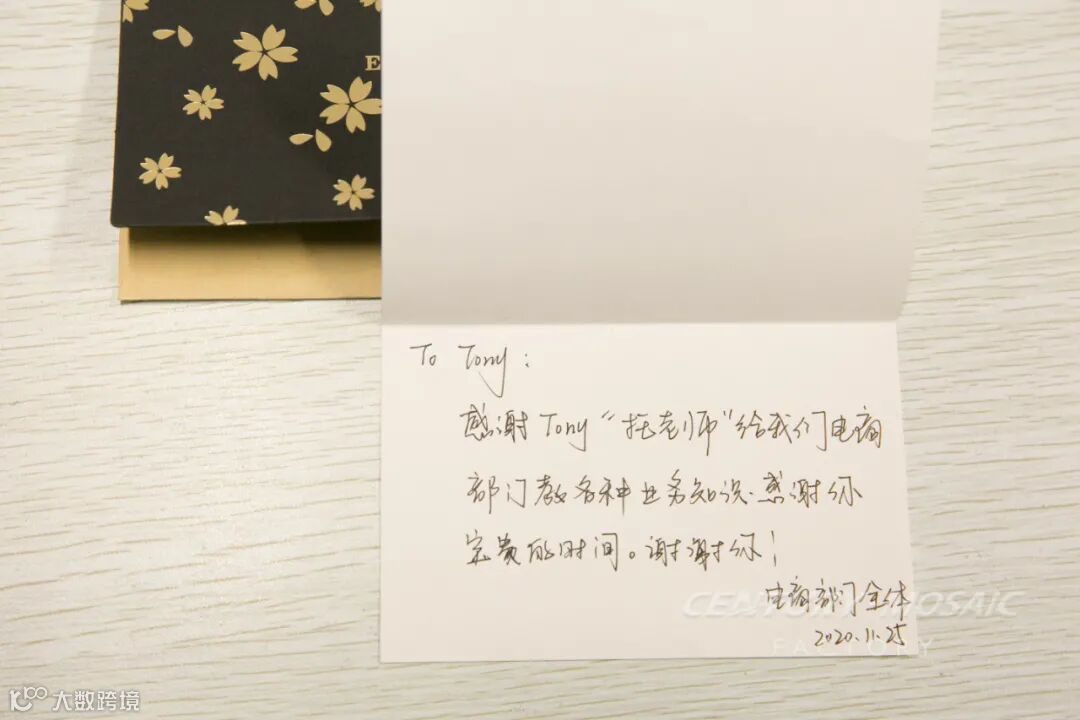 E
To Tony:
感谢Tony“托老师”给我们电商
部门教各种业务知识.感谢你
宝贵的时间。谢谢你!
电商部门全体
2020.11.25
CENTURY MOSAIC
FACTORY
大数跨境